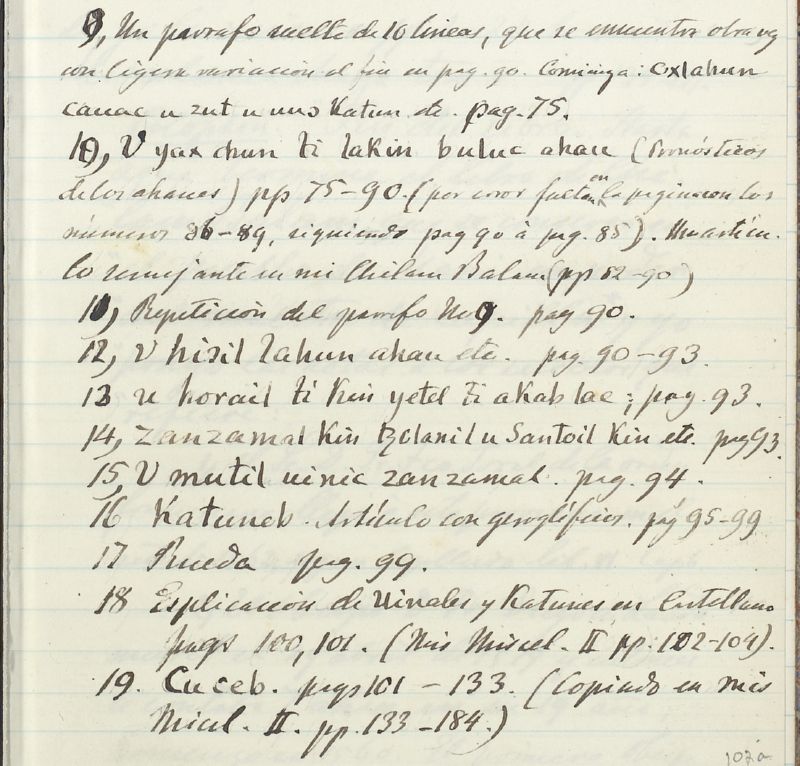 9, Un parrafo suelto de 10 lineas, que se encuentra otra vez
con ligera variacion al fin en pag. 90. Comienza: oxlahun
cauac u zut u uuo Katun etc. pag. 75.
10, V yax chun ti lakin buluc ahau (Pronósticos
de los ahaues) pp 75-90. (por error faltan en la paginacion los
números 86-89, siguiendo pag 90 à pag. 85). Un artícu-
lo semejante en mi Chilam Balam (pp 82-90)
11, Repeticion del parrafo No 9. pag 90.
12, V hisil lahun ahau etc. pag. 90-93.
13 u horail ti Kin yetel ti akab lae; pag. 93.
14, Zanzamal Kin tzolanil u Santoil Kin etc. pag 93.
15, V mutil uinic zanzamal. pag. 94.
16 Katuneb. Artículo con geroglíficos. pág 95-99
17 Rueda pag. 99.
18 Esplicacion de Uinales y Katunes en Castellano
pags 100, 101. (Mis Miscel. II pp. 102-104).
19. Cuceb. pags 101 - 133. (Copiado en mis
Micel. II. pp. 133-184.)
107a